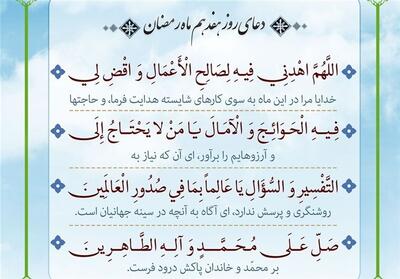 دعای روز هفدهم ماه رمضان
اللَّهُمَّ اهْدِنِي فِيهِ لِصَالِحِ الْأَعْمَالِ وَ اقْضِ لِي
خدایا مرا در این ماه به سوی کارهای شایسته هدایت فرما، و حاجتها
فِيهِ الْحَوَائِجَ وَ الْآمَالَ يَا مَنْ لَا يَحْتَاجُ إِلَى
و آرزوهایم را برآور، ای آن که نیاز به
التَّفْسِيرِ وَ السُّؤَالِ يَا عَالِماً بِمَا فِي صُدُورِ الْعَالَمِينَ
روشنگری و پرسش ندارد، ای آگاه به آنچه در سینه جهانیان است.
صَلِّ عَلَى مُحَمَّدٍ وَ آلِهِ الطَّاهِرِينَ
بر محمّد و خاندان پاکش درود فرست.